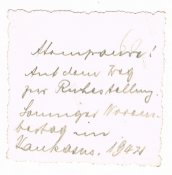 Atempause!
Auf dem Weg
zur Ruhestellung.
Sonniger Novem-
bertag im
Kaukasus. 1942